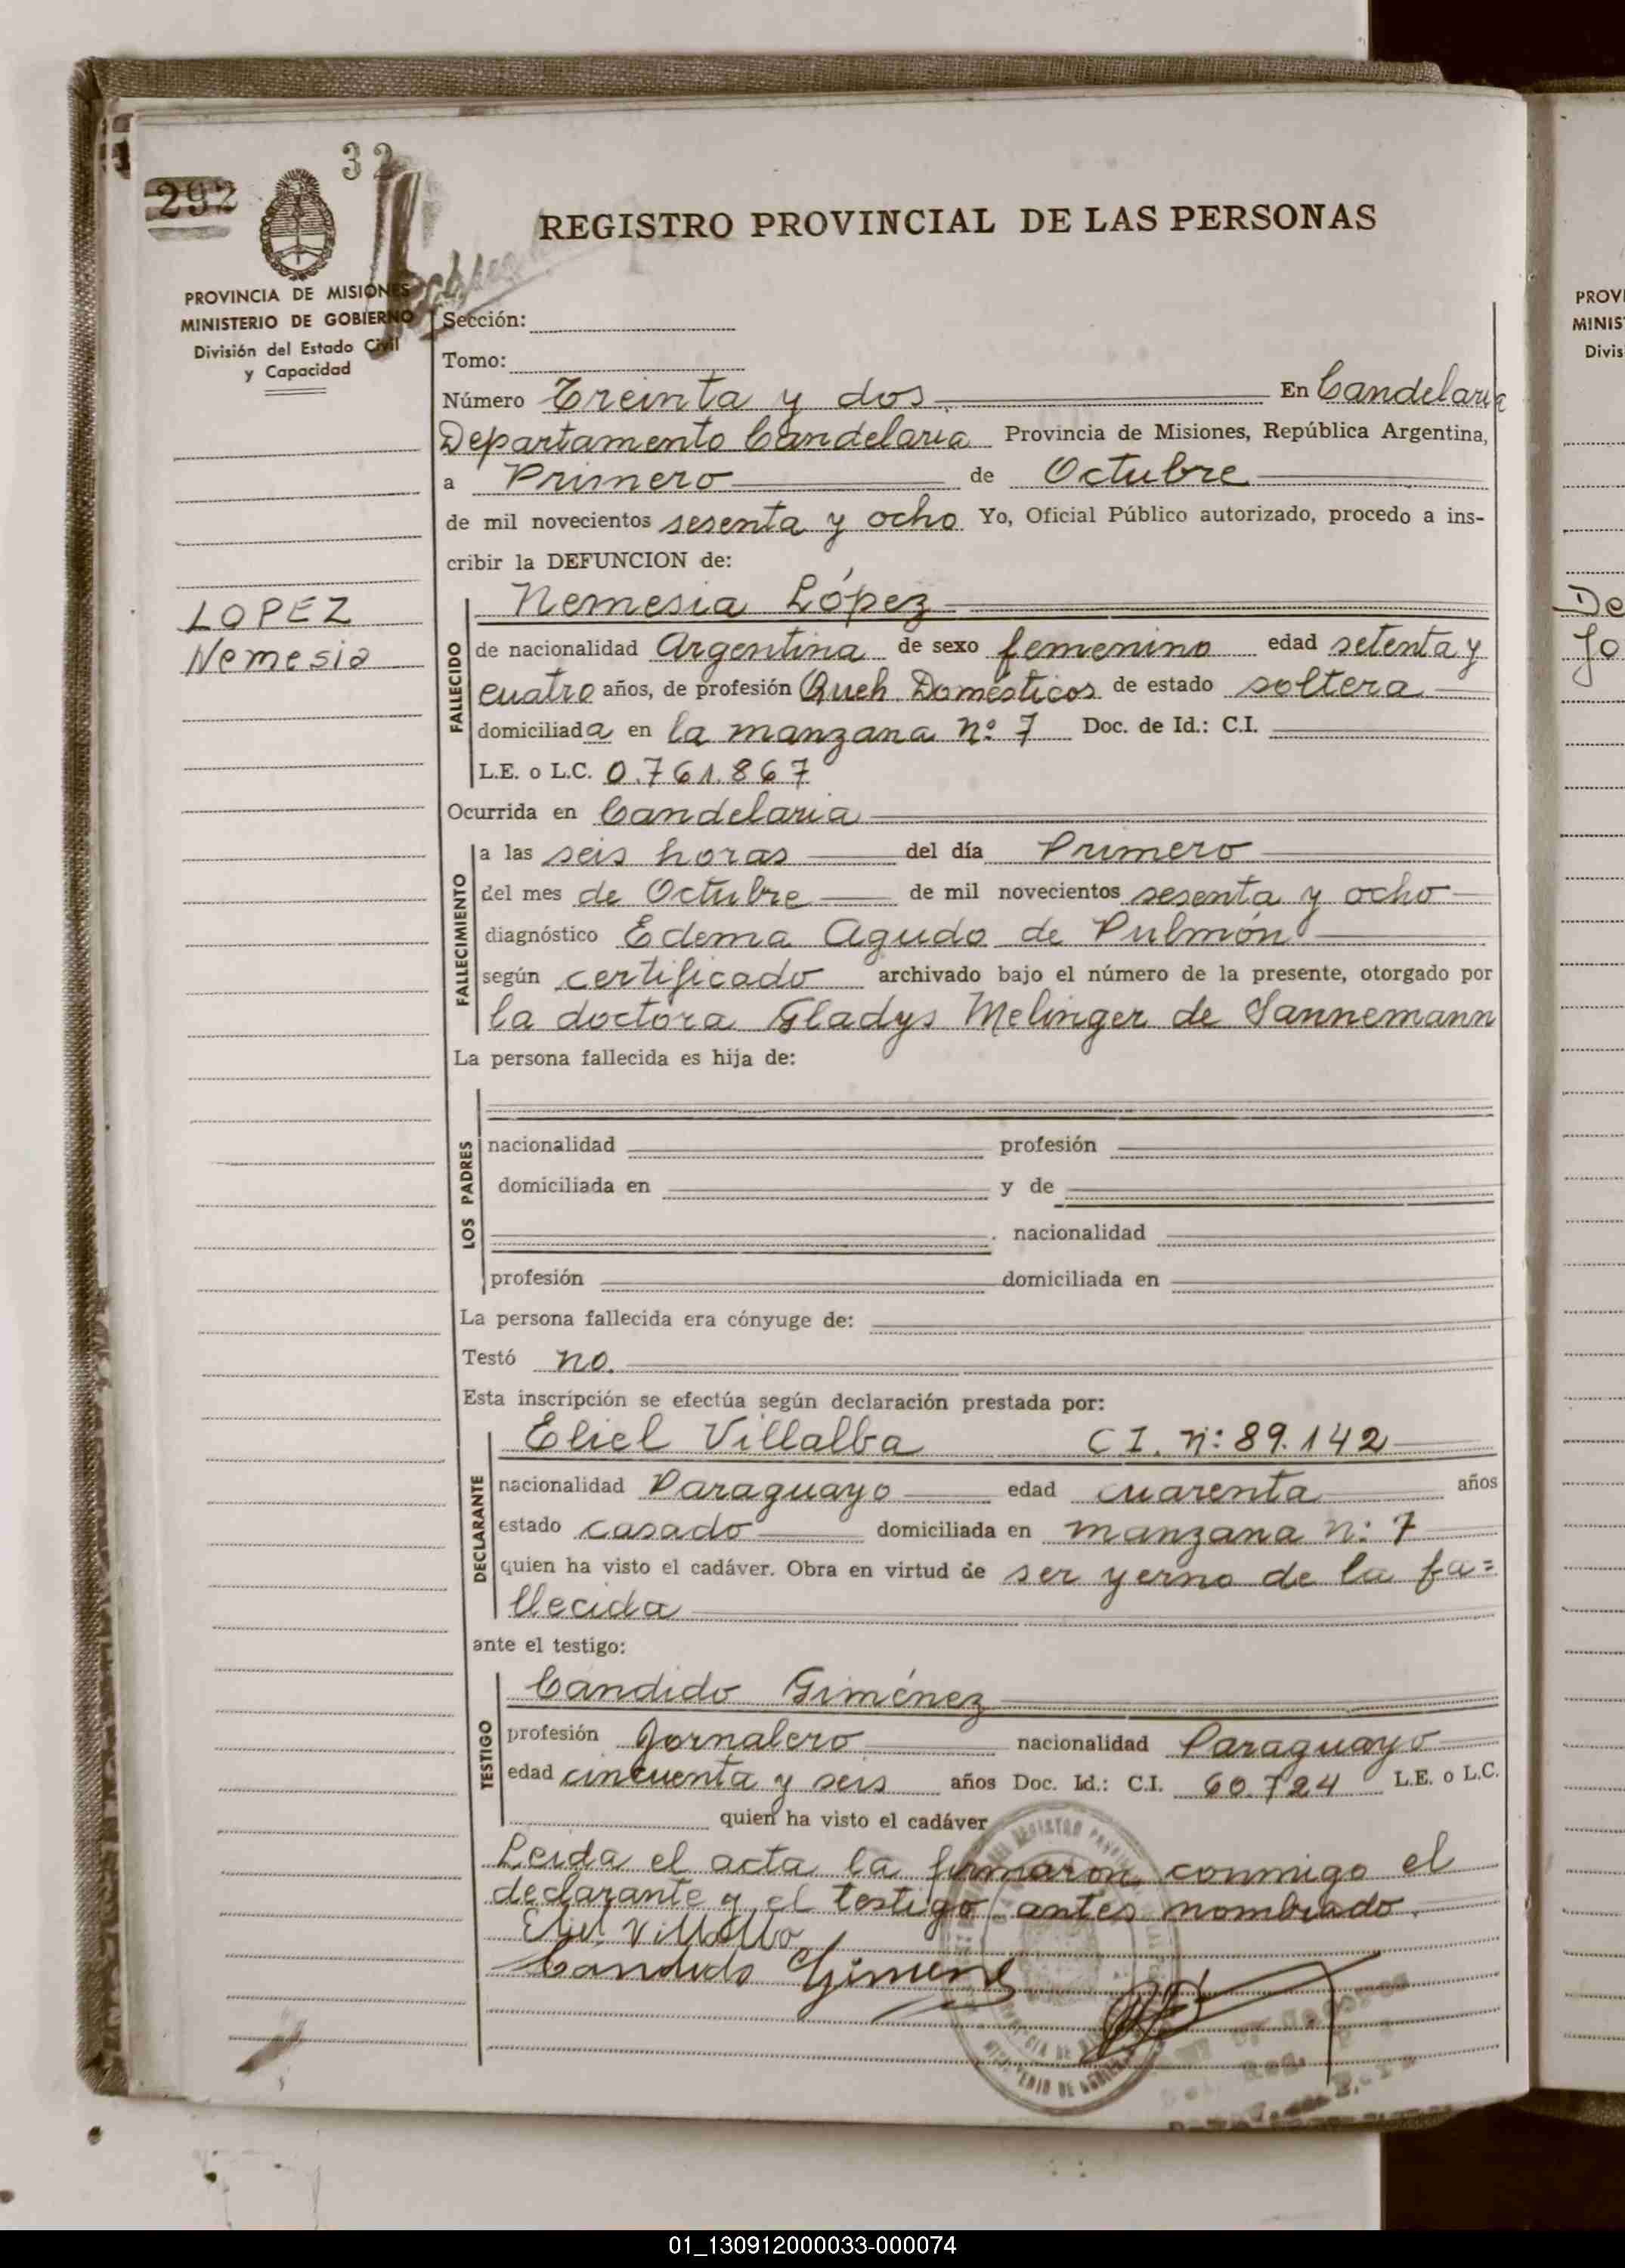 32
292
REGISTRO PROVINCIAL DE LAS PERSONAS
PROVINCIA DE MISIONES
MINISTERIO DE GOBIERNO
División del Estado Civil
y Capacidad
Sección:
Tomo:
Número Treinta y dos En Candelaria
Departamento Candelaria Provincia de Misiones, República Argentina,
a Primero de Octubre
de mil novecientos sesenta y ocho Yo, Oficial Público autorizado, procedo a ins-
cribir la DEFUNCION de:
LOPEZ
Nemesia
FALLECIDO
Nemesia López
de nacionalidad Argentina de sexo femenino edad setenta y
cuatro años, de profesión Queh. Domésticos de estado soltera
domiciliada en la manzana nº 7 Doc. de Id.: C.I.
L.E. o L.C. 0.761.867
Ocurrida en Candelaria
FALLECIMIENTO
a las seis horas del día Primero
del mes de Octubre de mil novecientos sesenta y ocho
diagnóstico Edema Agudo de Pulmón
según certificado archivado bajo el número de la presente, otorgado por
la doctora Gladys Melinger de Sannemann
La persona fallecida es hija de:
LOS PADRES
nacionalidad profesión
domiciliada en y de
nacionalidad
profesión domiciliada en
La persona fallecida era cónyuge de:
Testó no.
Esta inscripción se efectúa según declaración prestada por:
DECLARANTE
Eliel Villalba CI. nº: 89.142
nacionalidad Paraguayo edad cuarenta años
estado casado domiciliada en manzana n: 7
quien ha visto el cadáver. Obra en virtud de ser yerno de la fa=
llecida
ante el testigo:
TESTIGO
Candido Giménez
profesión Jornalero nacionalidad Paraguayo
edad cincuenta y seis años Doc. Id.: C.I. 60.724 L.E. o L.C.
quien ha visto el cadáver
Leida el acta la firmaron conmigo el
declarante y el testigo antes nombrado.
Eliel Villalba
Candido Gimenez
PROVI
MINIS
Divis
De
Jo
01_130912000033-000074